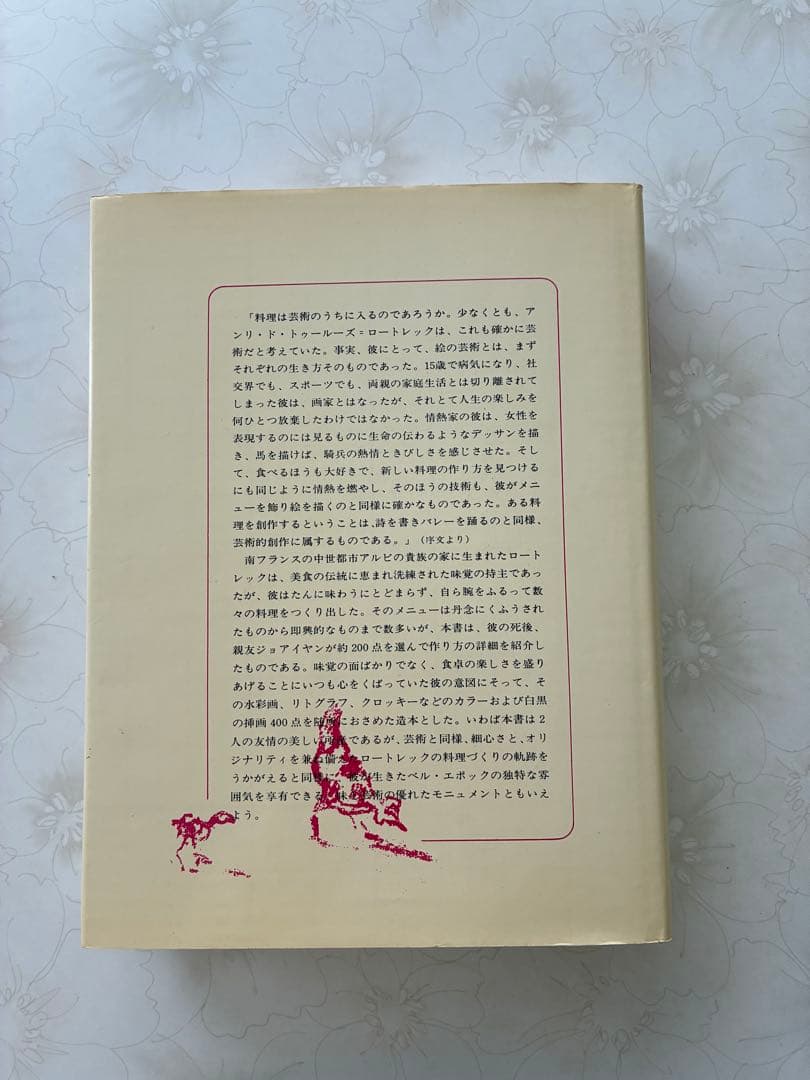 「料理は芸術のうちに入るのであろうか。少なくとも、ア
ンリ・ド・トゥールーズ=ロートレックは、これも確かに芸
術だと考えていた。事実、彼にとって、絵の芸術とは、まず
それぞれの生き方そのものであった。15歳で病気になり、社
交界でも、スポーツでも、両親の家庭生活とは切り離されて
しまった彼は、画家とはなったが、それとて人生の楽しみを
何ひとつ放棄したわけではなかった。情熱家の彼は、女性を
表現するのには見るものに生命の伝わるようなデッサンを描
き、馬を描けば、騎兵の熱情ときびしさを感じさせた。そし
て、食べるほうも大好きで、新しい料理の作り方を見つける
にも同じように情熱を燃やし、そのほうの技術も、彼がメニ
ューを飾り絵を描くのと同様に確かなものであった。ある料
理を創作するということは、詩を書きバレーを踊るのと同様、
芸術的創作に属するものである。」(序文より)
南フランスの中世都市アルビの貴族の家に生まれたロート
レックは、美食の伝統に恵まれ洗練された味覚の持主であっ
たが、彼はたんに味わうにとどまらず、自ら腕をふるって数
々の料理をつくり出した。そのメニューは丹念にくふうされ
たものから即興的なものまで数多いが、本書は、彼の死後、
親友ジョアイヤンが約200点を選んで作り方の詳細を紹介し
たものである。味覚の面ばかりでなく、食卓の楽しさを盛り
あげることにいつも心をくばっていた彼の意図にそって、そ
の水彩画、リトグラフ、クロッキーなどのカラーおよび白黒
の挿画400点を随所におさめた造本とした。いわば本書は2
人の友情の美しい所産であるが、芸術と同様、細心さと、オリ
ジナリティを兼ね備えたロートレックの料理づくりの軌跡を
うかがえると同時に、彼が生きたベル・エポックの独特な雰
囲気を享有できる、味と芸術の優れたモニュメントともいえ
よう。